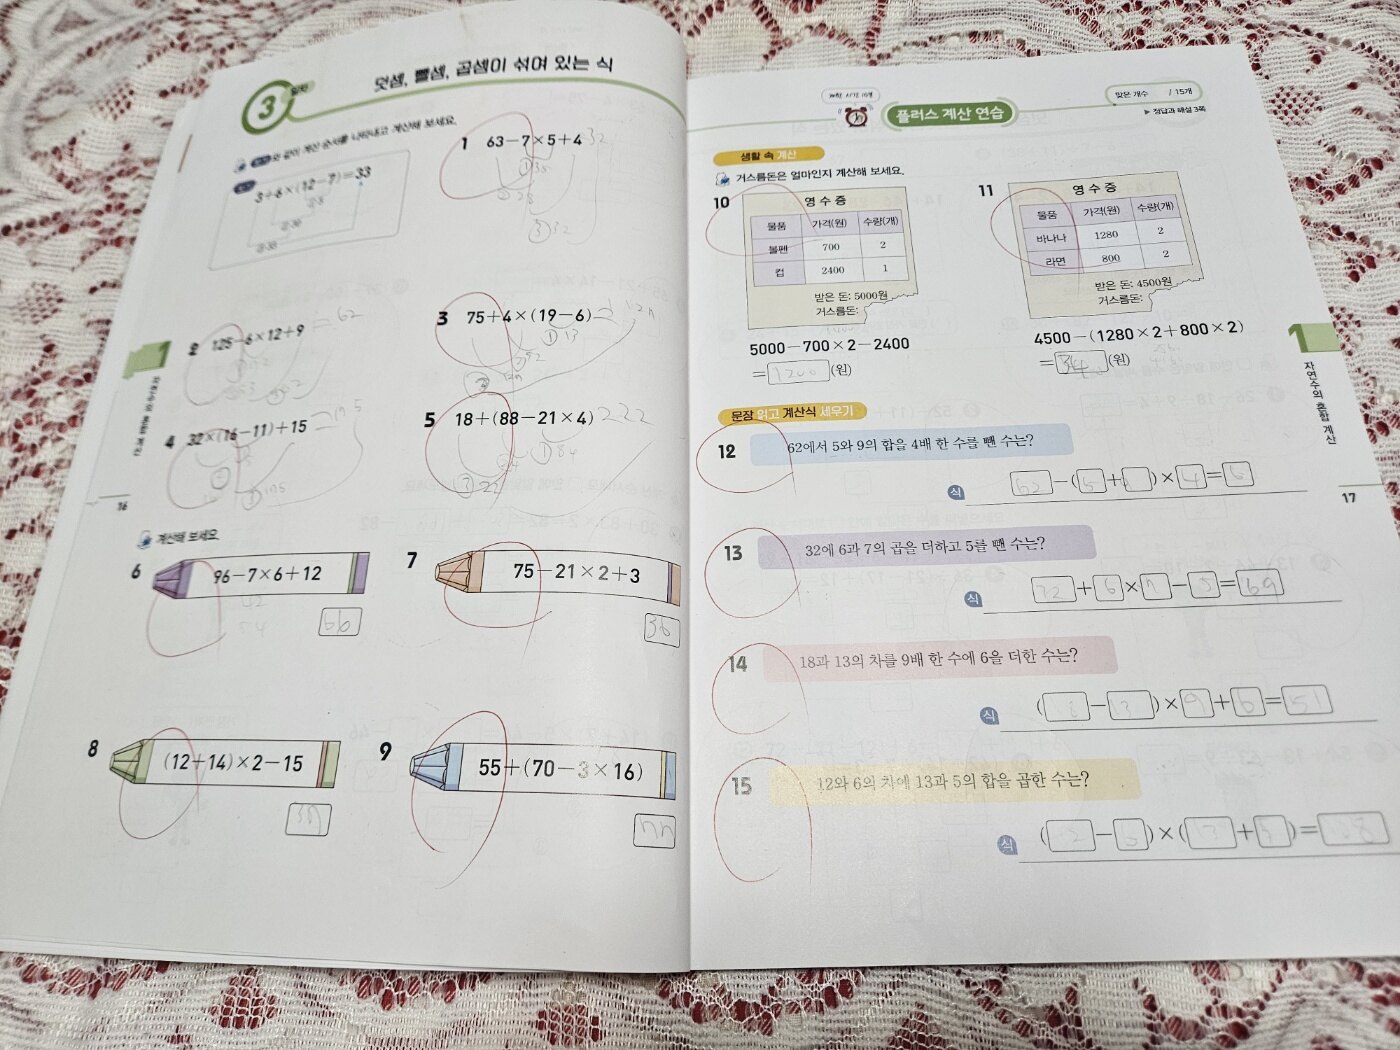 3 일차
덧셈, 뺄셈, 곱셈이 섞여 있는 식
보기와 같이 계산 순서를 나타내고 계산해 보세요.
보기
3+6×(12-7)=33
1 63-7×5+4 32
① 35
② 28
③ 32
2 125-6×12+9 = 62
3 75+4×(19-6)
① 13
② 52
4 32×(16-11)+15
5 18+(88-21×4) = 22
① 84
③ 22
16
계산해 보세요.
6 96-7×6+12
42
54
66
7 75-21×2+3
36
8 (12+14)×2-15
37
9 55+(70-3×16)
77
제한 시간 10분
플러스 계산 연습
맞은 개수 /15개
▶ 정답과 해설 3쪽
생활 속 계산
거스름돈은 얼마인지 계산해 보세요.
10
영수증
물품 가격(원) 수량(개)
볼펜 700 2
컵 2400 1
받은 돈: 5000원
거스름돈:
5000-700×2-2400
= 1200 (원)
11
영수증
물품 가격(원) 수량(개)
바나나 1280 2
라면 800 2
받은 돈: 4500원
거스름돈:
4500-(1280×2+800×2)
= (원)
문장 읽고 계산식 세우기
12 62에서 5와 9의 합을 4배 한 수를 뺀 수는?
식 62-(5+ )×4=6
13 32에 6과 7의 곱을 더하고 5를 뺀 수는?
식 32+6×7-5=69
14 18과 13의 차를 9배 한 수에 6을 더한 수는?
식 (18-13)×9+6=51
15 12와 6의 차에 13과 5의 합을 곱한 수는?
식 ( - )×(13+5)=
1
자연수의 혼합 계산
17